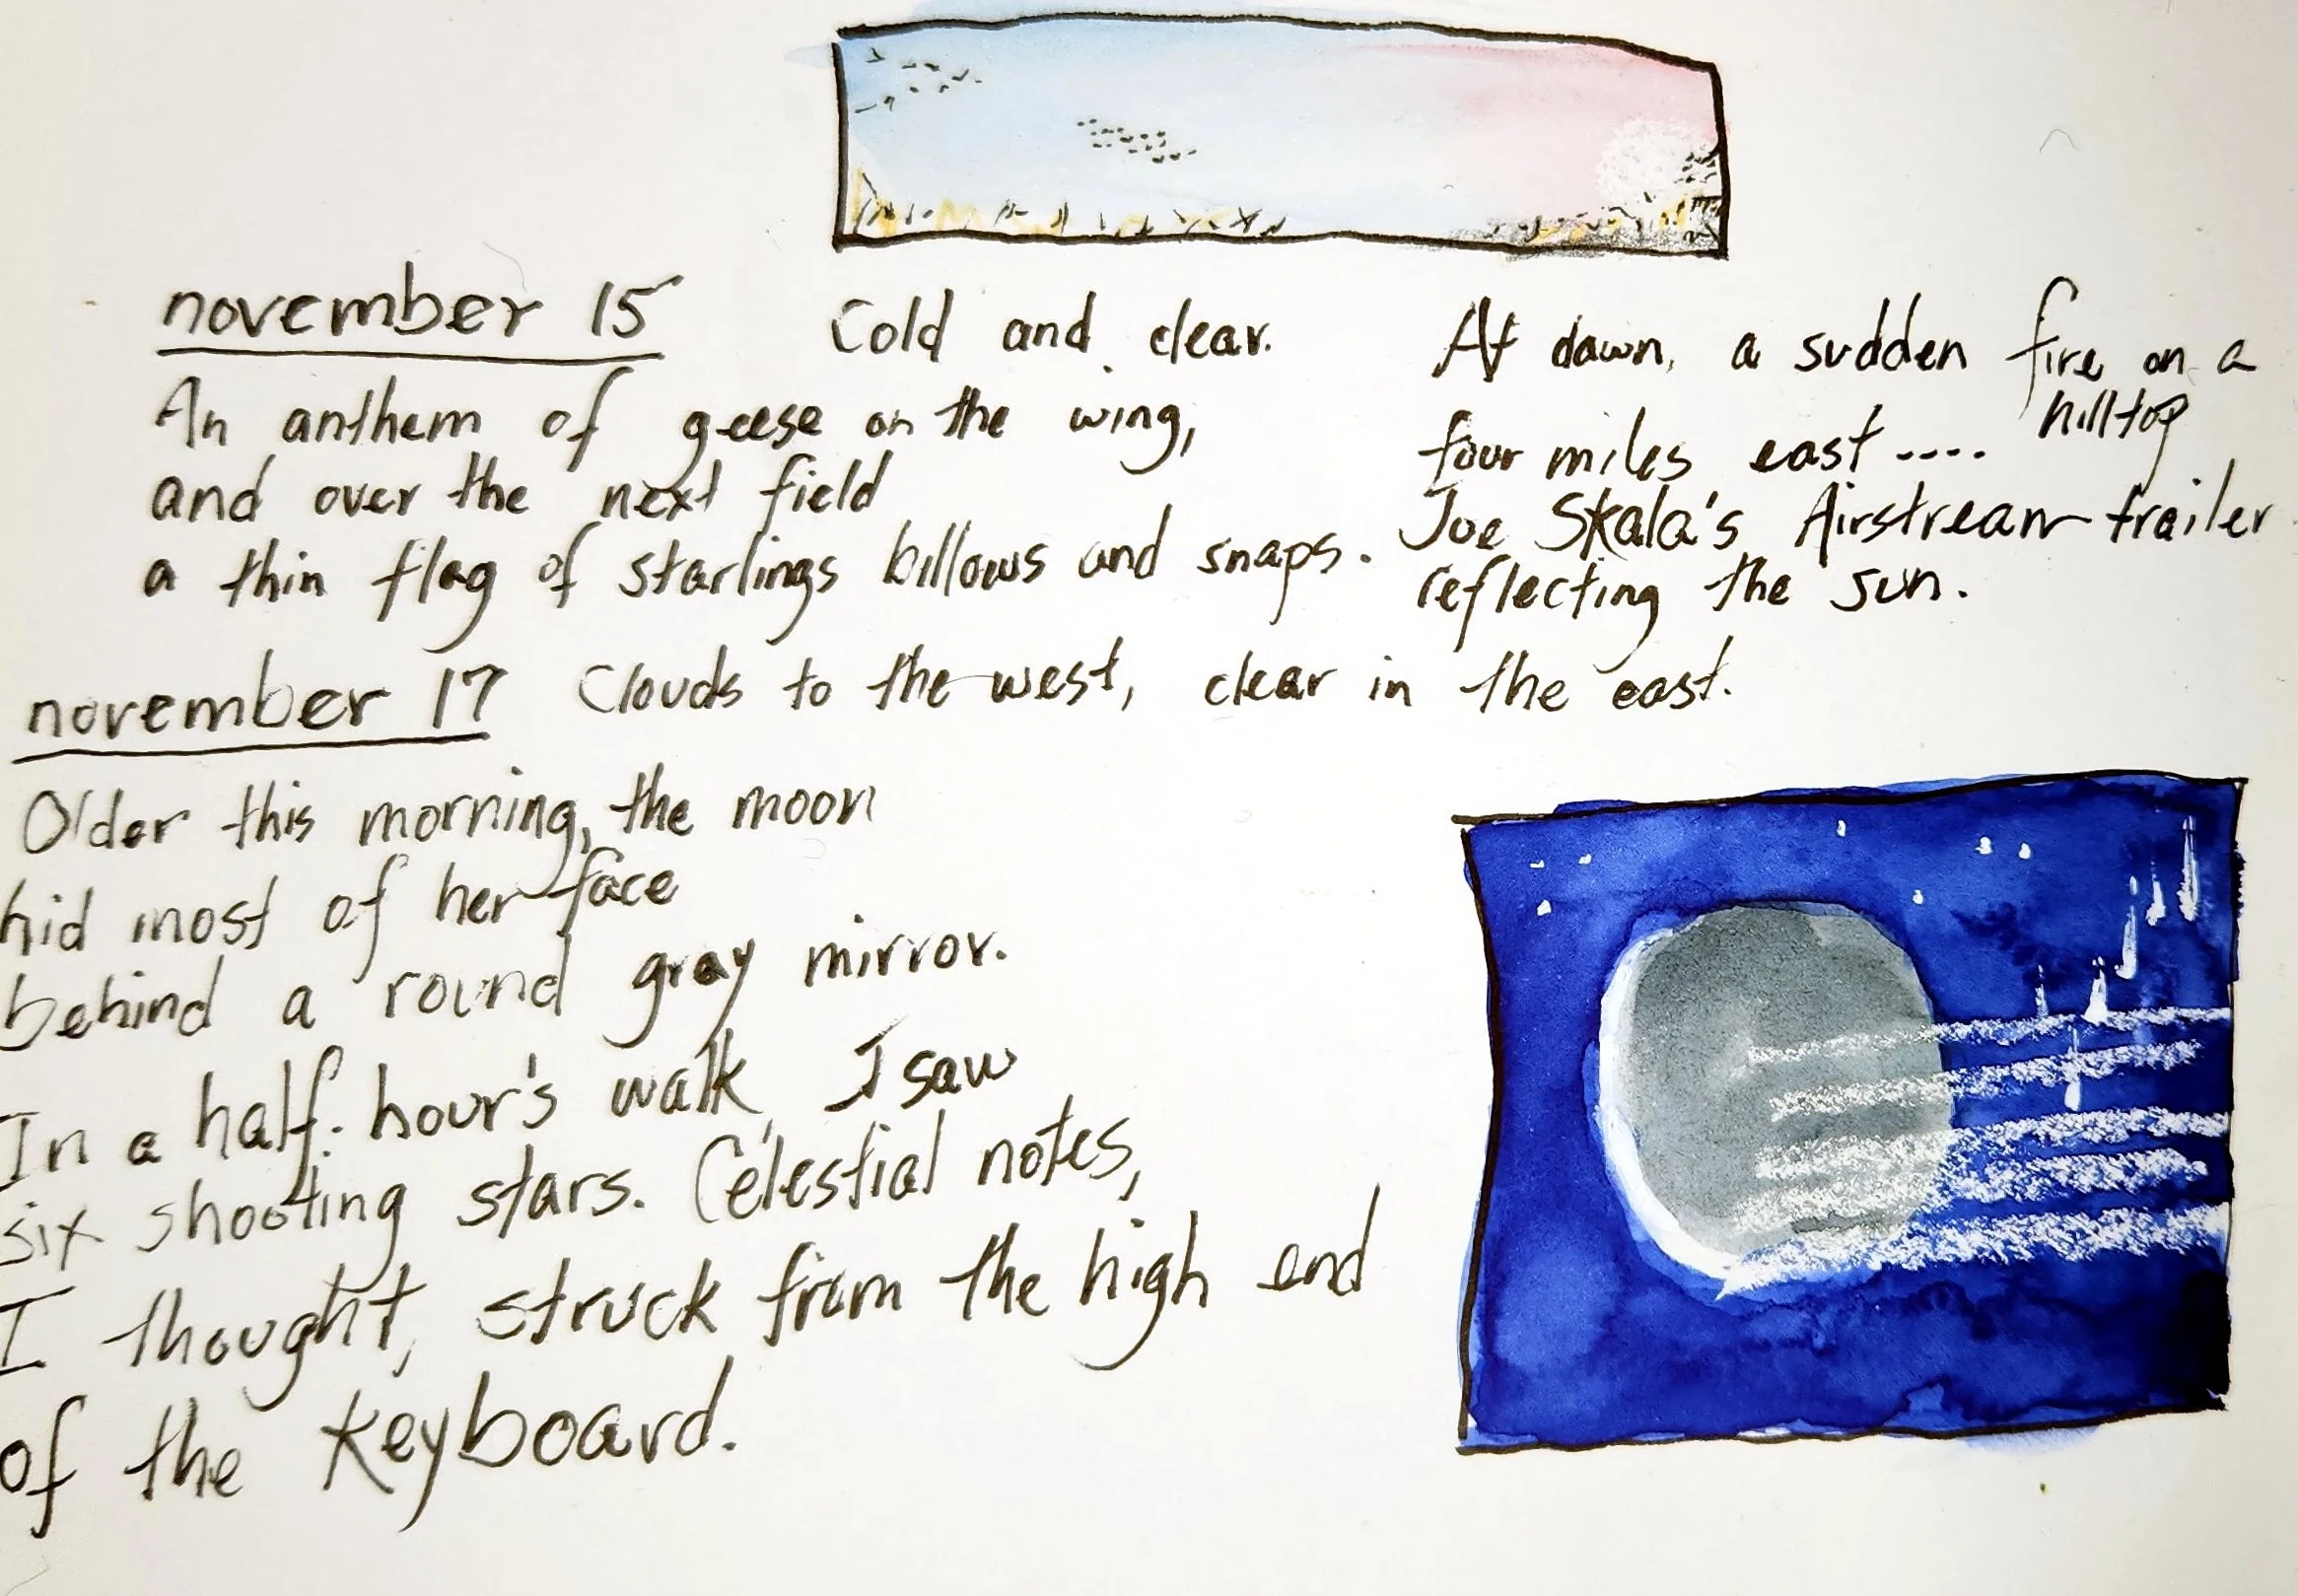 november 15
Cold and clear.
An anthem of geese on the wing,
and over the next field
a thin flag of starlings billows and snaps.
At dawn, a sudden fire on a
hilltop
four miles east....
Joe Skala's Airstream trailer
reflecting the sun.
november 17 Clouds to the west, clear in the east.
Older this morning, the moon
hid most of her face
behind a round gray mirror.
In a half-hour's walk, I saw
six shooting stars. Celestial notes,
I thought, struck from the high end
of the keyboard.